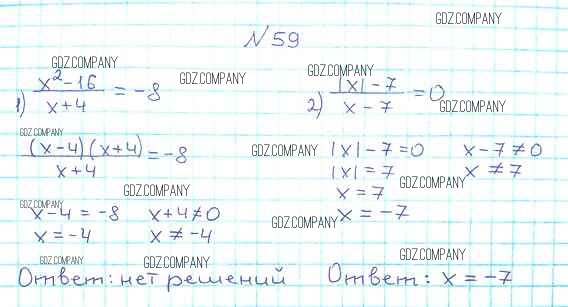 GDZ.COMPANY
№ 59
GDZ.COMPANY
GDZ.COMPANY
GDZ.COMPANY
1) (x² - 16)/(x + 4) = -8
2) (|x| - 7)/(x - 7) = 0
GDZ.COMPANY
GDZ.COMPANY
((x - 4)(x + 4))/(x + 4) = -8
GDZ.COMPANY
|x| - 7 = 0 x - 7 ≠ 0
|x| = 7 x ≠ 7
GDZ.COMPANY
GDZ.COMPANY
x = 7
GDZ.COMPANY
x - 4 = -8 x + 4 ≠ 0
GDZ.COMPANY
x = -7
x = -4 x ≠ -4
GDZ.COMPANY
GDZ.COMPANY
GDZ.COMPANY
Ответ: нет решений
Ответ: x = -7